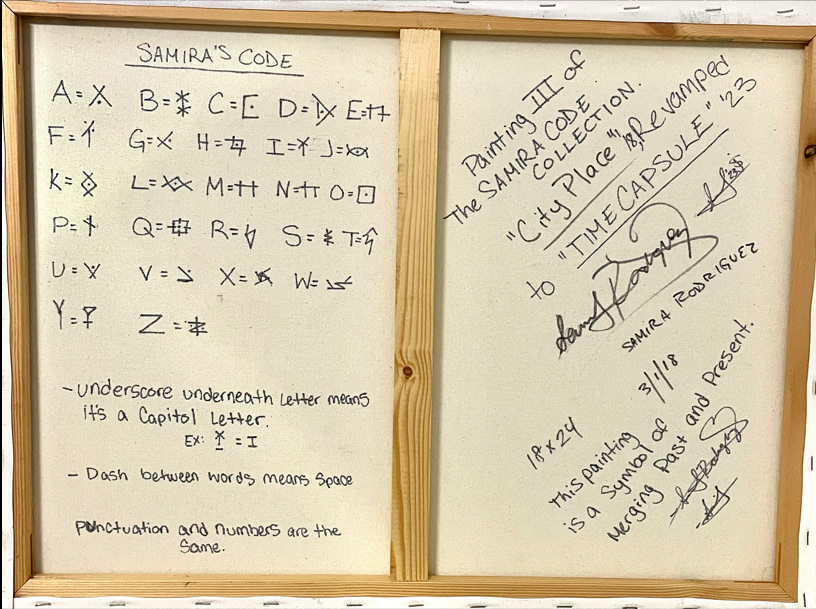 SAMIRA'S CODE
A= B= C= D= E=
F= G= H= I= J=
K= L= M= N= O=
P= Q= R= S= T=
U= V= X= W=
Y= Z=
- underscore underneath Letter means
it's a Capitol Letter.
Ex: = I
- Dash between words means Space
Punctuation and numbers are the
Same.
Painting III of
The SAMIRA CODE
COLLECTION.
"City Place" '18, Revamped
to "TIME CAPSULE" '23
SAMIRA RODRIGUEZ
3/1/18
18 x 24
This painting
is a Symbol of
Merging Past and Present.